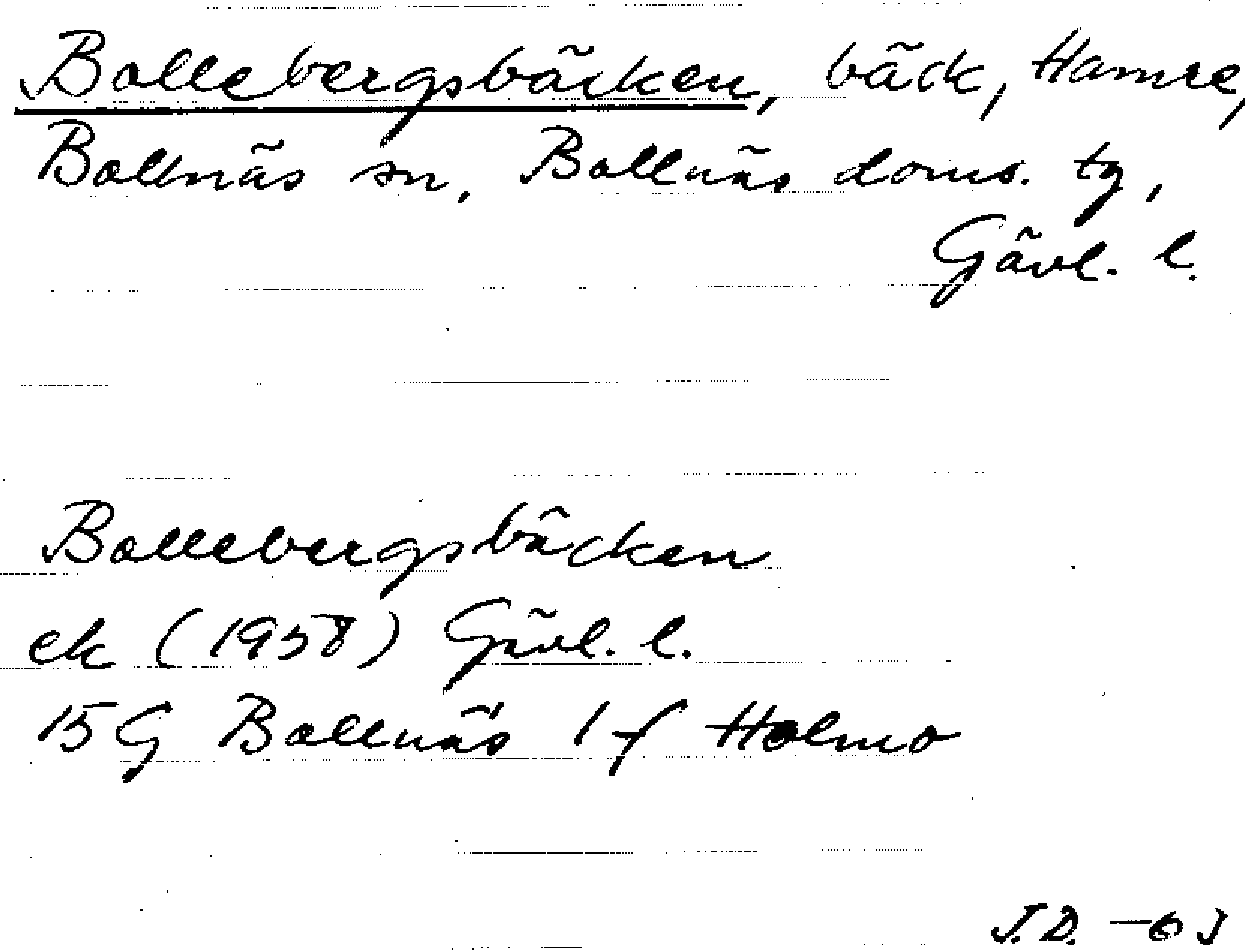 Bollebergsbäcken, bäck, Hamre,
Bollnäs sn, Bollnäs doms. tg,
Gävl. l.
Bollebergsbäcken
ek (1958) Gävl. l.
15G Bollnäs 1f Holmo
J.D. -63